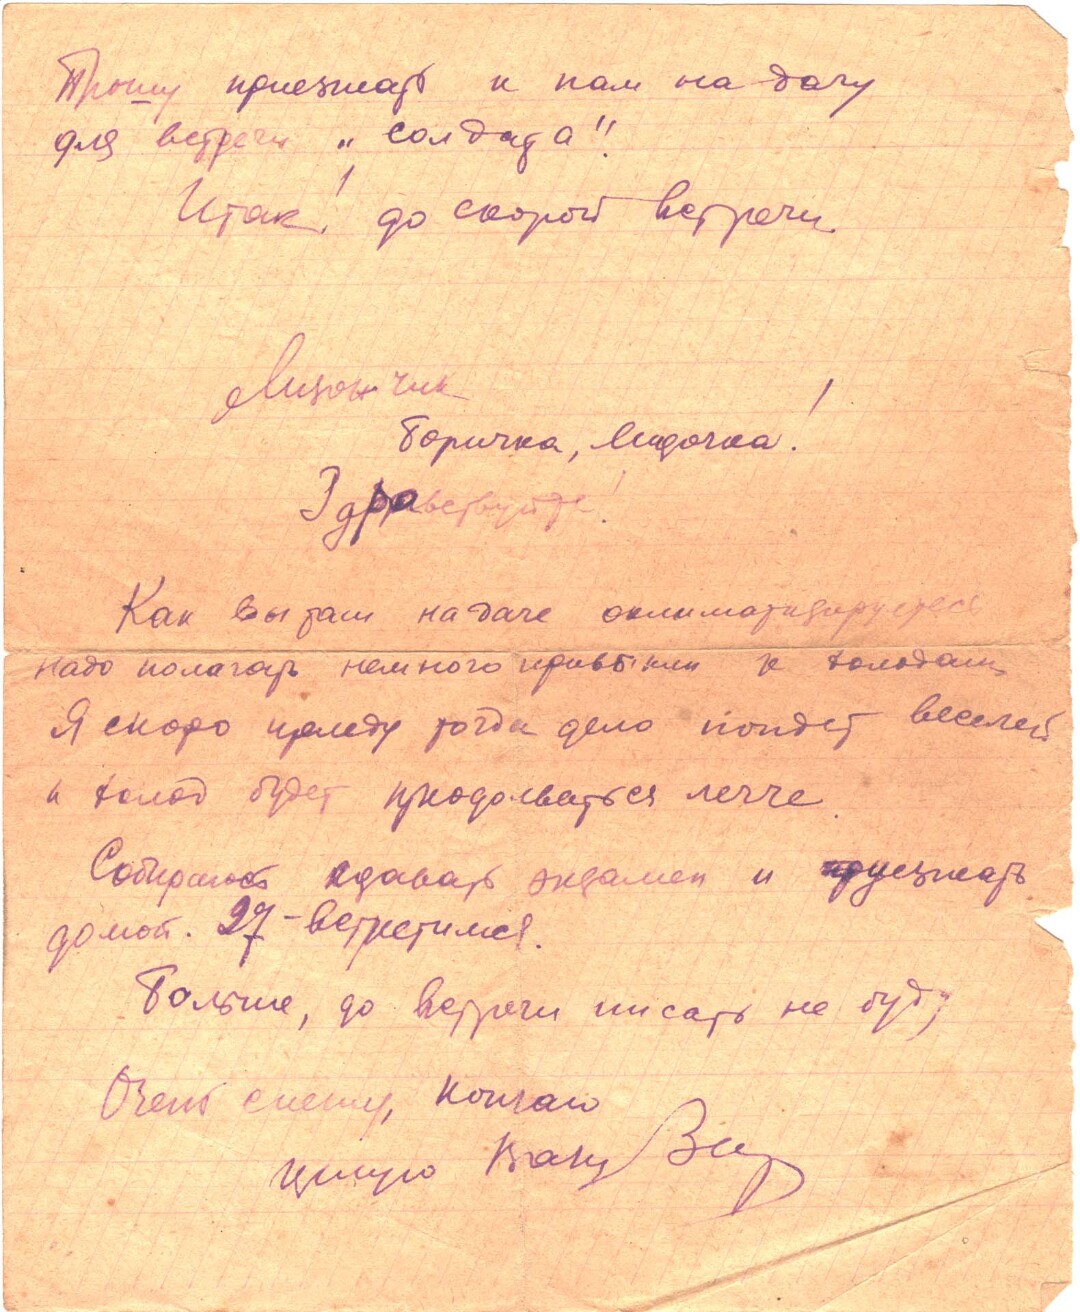 Прошу приезжать к нам на дачу
для встречи „солдата"!
Итак! до скорой встречи
Лизончик
Боричка, Лидочка!
Здравствуйте!
Как вы там на даче оклиматизируетесь
надо полагать немного привыкли к холодам,
Я скоро приеду тогда дело пойдет веселей
и холод будет преодолеваться легче
Собираюсь сдавать экзамен и приезжать
домой. 27-встретимся.
Больше, до встречи писать не буду
Очень спешу, кончаю
целую Ваш